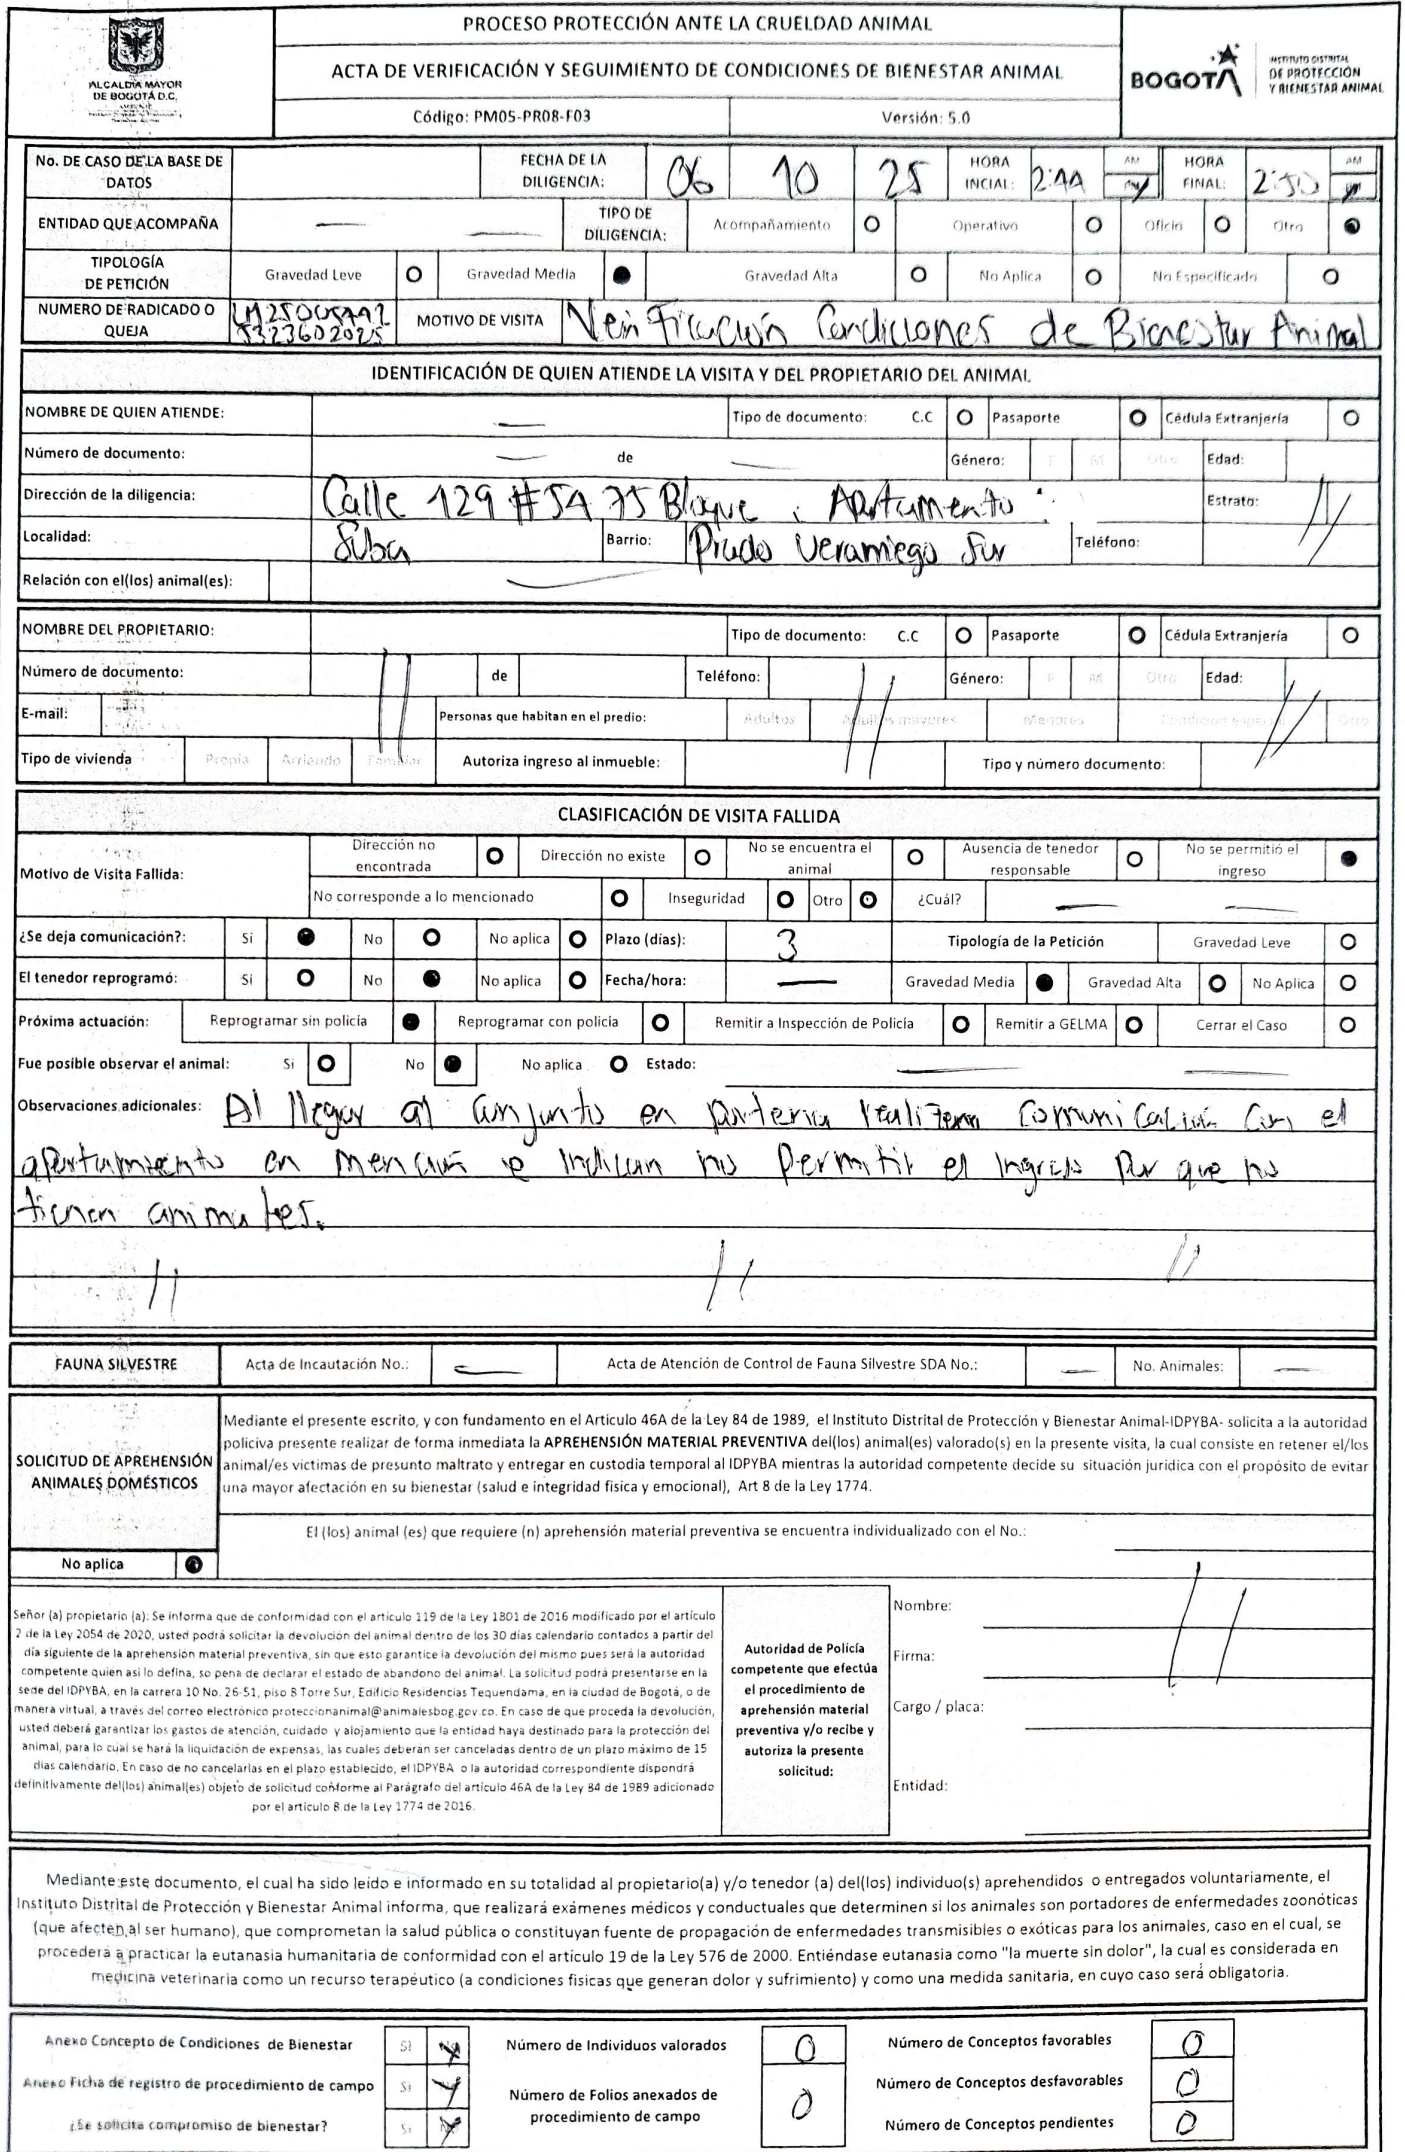 PROCESO PROTECCIÓN ANTE LA CRUELDAD ANIMAL
ALCALDÍA MAYOR
DE BOGOTÁ D.C.
ACTA DE VERIFICACIÓN Y SEGUIMIENTO DE CONDICIONES DE BIENESTAR ANIMAL
BOGOTÁ
INSTITUTO DISTRITAL
DE PROTECCIÓN
Y BIENESTAR ANIMAL
Código: PM05-PR08-F03 Versión: 5.0
No. DE CASO DE LA BASE DE DATOS FECHA DE LA DILIGENCIA: 06 10 25 HORA INCIAL: 2:44 AM PM HORA FINAL: 2:50 AM
ENTIDAD QUE ACOMPAÑA — — TIPO DE DILIGENCIA: Acompañamiento Operativo Oficio Otro
TIPOLOGÍA DE PETICIÓN Gravedad Leve Gravedad Media Gravedad Alta No Aplica No Especificado
NUMERO DE RADICADO O QUEJA 5323602025 MOTIVO DE VISITA Verificación Condiciones de Bienestar Animal
IDENTIFICACIÓN DE QUIEN ATIENDE LA VISITA Y DEL PROPIETARIO DEL ANIMAL
NOMBRE DE QUIEN ATIENDE: — Tipo de documento: C.C Pasaporte Cédula Extranjería
Número de documento: — de — Género: F M Otro Edad:
Dirección de la diligencia: Calle 129 #54 75 Bloque Apartamento Estrato: //
Localidad: Suba Barrio: Prado Veraniego Sur Teléfono:
Relación con el(los) animal(es): —
NOMBRE DEL PROPIETARIO: Tipo de documento: C.C Pasaporte Cédula Extranjería
Número de documento: // de Teléfono: // Género: F M Otro Edad: //
E-mail: Personas que habitan en el predio: Adultos Adultos mayores Menores Condición especial Otro
Tipo de vivienda Propia Arriendo Familiar Autoriza ingreso al inmueble: Tipo y número documento:
CLASIFICACIÓN DE VISITA FALLIDA
Motivo de Visita Fallida: Dirección no encontrada Dirección no existe No se encuentra el animal Ausencia de tenedor responsable No se permitió el ingreso
No corresponde a lo mencionado Inseguridad Otro ¿Cuál? — —
¿Se deja comunicación?: Si No No aplica Plazo (días): 3 Tipología de la Petición Gravedad Leve
El tenedor reprogramó: Si No No aplica Fecha/hora: — Gravedad Media Gravedad Alta No Aplica
Próxima actuación: Reprogramar sin policía Reprogramar con policía Remitir a Inspección de Policía Remitir a GELMA Cerrar el Caso
Fue posible observar el animal: Si No No aplica Estado: — —
Observaciones adicionales: Al llegar al conjunto en porteria realizan comunicación con el
apartamiento en mención e indican no permitir el ingreso por que no
tienen animales.
// // //
FAUNA SILVESTRE Acta de Incautación No.: — Acta de Atención de Control de Fauna Silvestre SDA No.: — No. Animales: —
SOLICITUD DE APREHENSIÓN ANIMALES DOMÉSTICOS
Mediante el presente escrito, y con fundamento en el Articulo 46A de la Ley 84 de 1989, el Instituto Distrital de Protección y Bienestar Animal-IDPYBA- solicita a la autoridad
policiva presente realizar de forma inmediata la APREHENSIÓN MATERIAL PREVENTIVA del(los) animal(es) valorado(s) en la presente visita, la cual consiste en retener el/los
animal/es victimas de presunto maltrato y entregar en custodia temporal al IDPYBA mientras la autoridad competente decide su situación juridica con el propósito de evitar
una mayor afectación en su bienestar (salud e integridad fisica y emocional), Art 8 de la Ley 1774.
El (los) animal (es) que requiere (n) aprehensión material preventiva se encuentra individualizado con el No.:
No aplica
Señor (a) propietario (a): Se informa que de conformidad con el articulo 119 de la Ley 1801 de 2016 modificado por el artículo
2 de la Ley 2054 de 2020, usted podrá solicitar la devolución del animal dentro de los 30 días calendario contados a partir del
día siguiente de la aprehensión material preventiva, sin que esto garantice la devolución del mismo pues será la autoridad
competente quien asi lo defina, so pena de declarar el estado de abandono del animal. La solicitud podrá presentarse en la
sede del IDPYBA, en la carrera 10 No. 26-51, piso 8 Torre Sur, Edificio Residencias Tequendama, en la ciudad de Bogotá, o de
manera virtual, a través del correo electrónico proteccionanimal@animalesbog.gov.co. En caso de que proceda la devolución,
usted deberá garantizar los gastos de atención, cuidado y alojamiento que la entidad haya destinado para la protección del
animal, para lo cual se hará la liquidación de expensas, las cuales deberán ser canceladas dentro de un plazo máximo de 15
días calendario. En caso de no cancelarlas en el plazo establecido, el IDPYBA o la autoridad correspondiente dispondrá
definitivamente del(los) animal(es) objeto de solicitud conforme al Parágrafo del articulo 46A de la Ley 84 de 1989 adicionado
por el articulo 8 de la Ley 1774 de 2016.
Autoridad de Policía
competente que efectúa
el procedimiento de
aprehensión material
preventiva y/o recibe y
autoriza la presente
solicitud:
Nombre: //
Firma:
Cargo / placa:
Entidad:
Mediante este documento, el cual ha sido leído e informado en su totalidad al propietario(a) y/o tenedor (a) del(los) individuo(s) aprehendidos o entregados voluntariamente, el
Instituto Distrital de Protección y Bienestar Animal informa, que realizará exámenes médicos y conductuales que determinen si los animales son portadores de enfermedades zoonóticas
(que afecten al ser humano), que comprometan la salud pública o constituyan fuente de propagación de enfermedades transmisibles o exóticas para los animales, caso en el cual, se
procederá a practicar la eutanasia humanitaria de conformidad con el artículo 19 de la Ley 576 de 2000. Entiéndase eutanasia como "la muerte sin dolor", la cual es considerada en
medicina veterinaria como un recurso terapéutico (a condiciones fisicas que generan dolor y sufrimiento) y como una medida sanitaria, en cuyo caso será obligatoria.
Anexo Concepto de Condiciones de Bienestar Si Número de Individuos valorados 0 Número de Conceptos favorables 0
Anexo Ficha de registro de procedimiento de campo Si Número de Folios anexados de procedimiento de campo 0 Número de Conceptos desfavorables 0
¿Se solicita compromiso de bienestar? Si Número de Conceptos pendientes 0